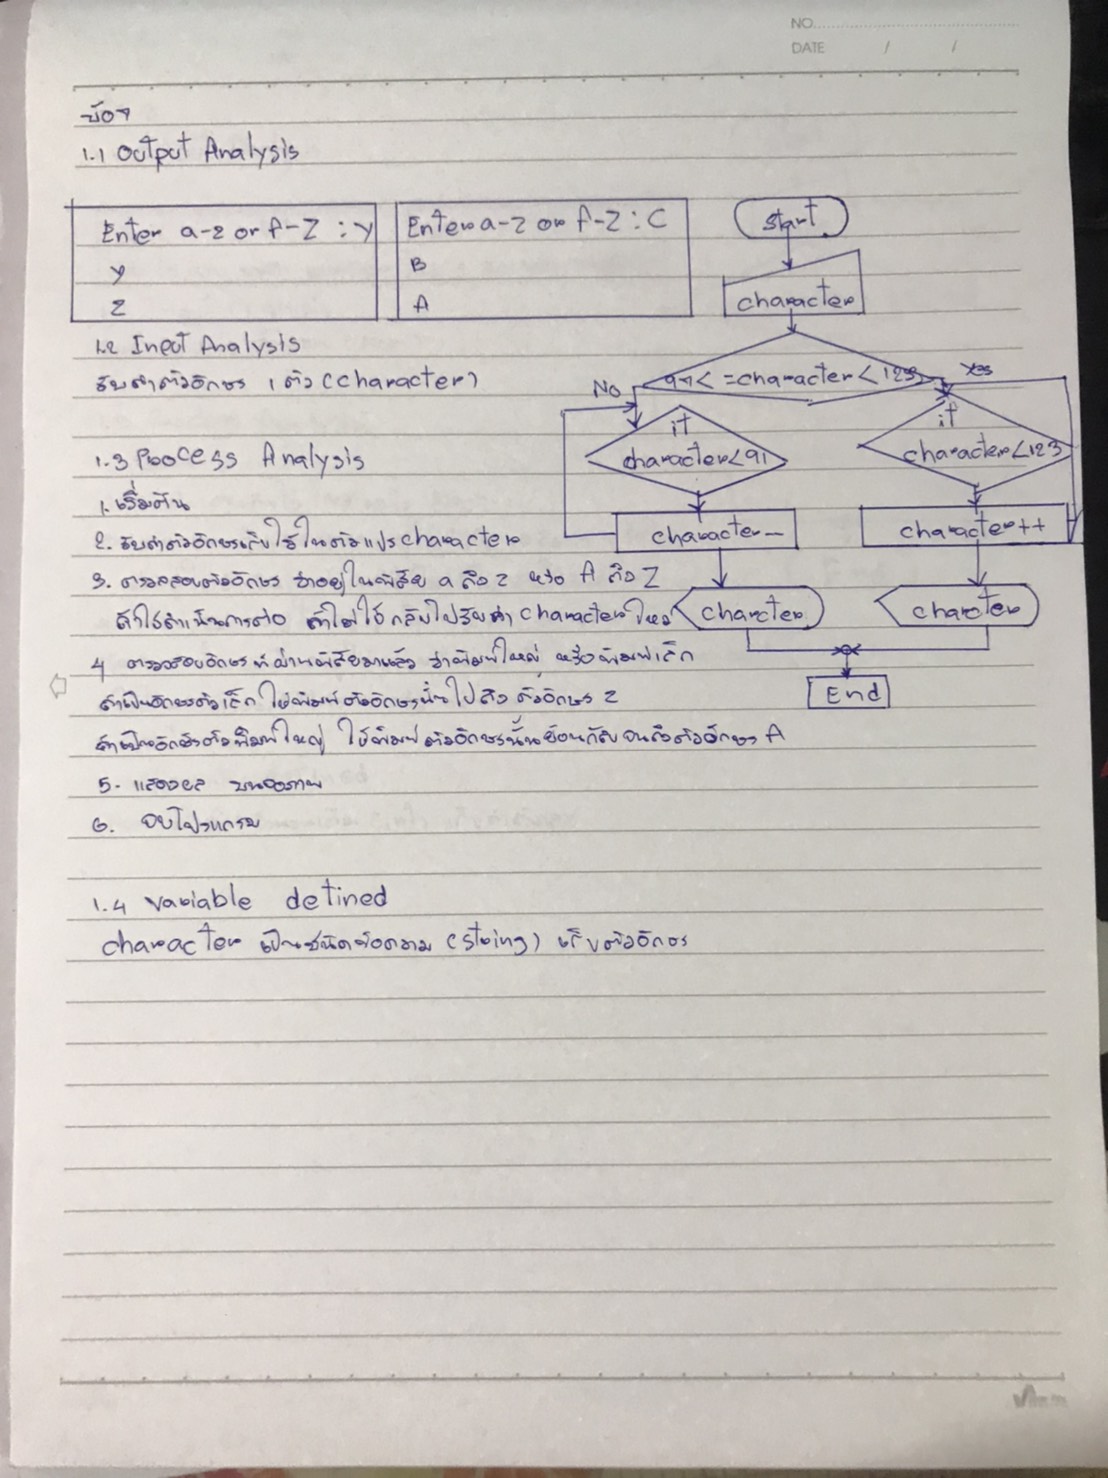 NO.
DATE / /
ข้อ 1
1.1 Output Analysis
Enter a-z or A-Z : y
y
z
Enter a-z or A-Z : C
B
A
1.2 Input Analysis
รับค่าตัวอักษร 1 ตัว (character)
1.3 Process Analysis
1. เริ่มต้น
2. รับค่าตัวอักษรเก็บไว้ในตัวแปร character
3. ตรวจสอบตัวอักษร ว่าอยู่ในพิสัย a ถึง z หรือ A ถึง Z
ถ้าใช่ดำเนินการต่อ ถ้าไม่ใช่กลับไปรับค่า character ใหม่
4 ตรวจสอบอักษรที่ผ่านพิสัยมาแล้ว ว่าพิมพ์ใหญ่ หรือพิมพ์เล็ก
ถ้าเป็นอักษรตัวเล็ก ให้พิมพ์ตัวอักษรนั้นไปถึง ตัวอักษร z
ถ้าเป็นอักษรตัวพิมพ์ใหญ่ ให้พิมพ์ตัวอักษรนั้นย้อนกลับจนถึงตัวอักษร A
5. แสดงผล บนจอภาพ
6. จบโปรแกรม
1.4 Variable defined
character เป็นชนิดข้อความ (string) เก็บตัวอักษร
Start
character
97<=character<123
No
Yes
if
character<91
if
character<123
character--
character++
charcter
charcter
End